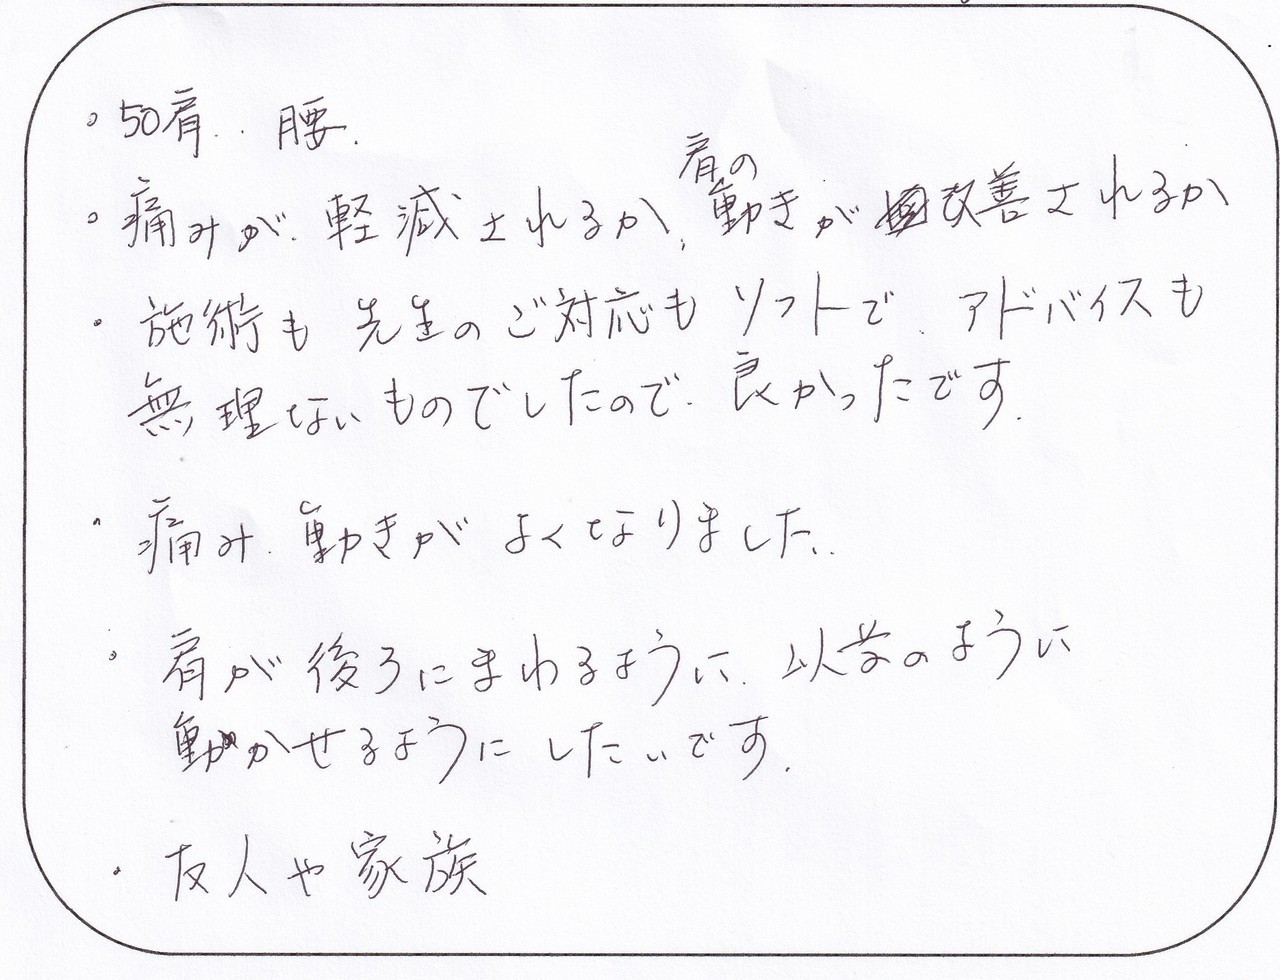 。50肩.. 腰.
。痛みが.軽減されるか、肩の動きが改善されるか
・施術も先生のご対応もソフトで.アドバイスも
無理ないものでしたので.良かったです.
・痛み.動きがよくなりました..
。肩が後ろにまわるように.以前のように
動かせるようにしたいです.
・友人や家族